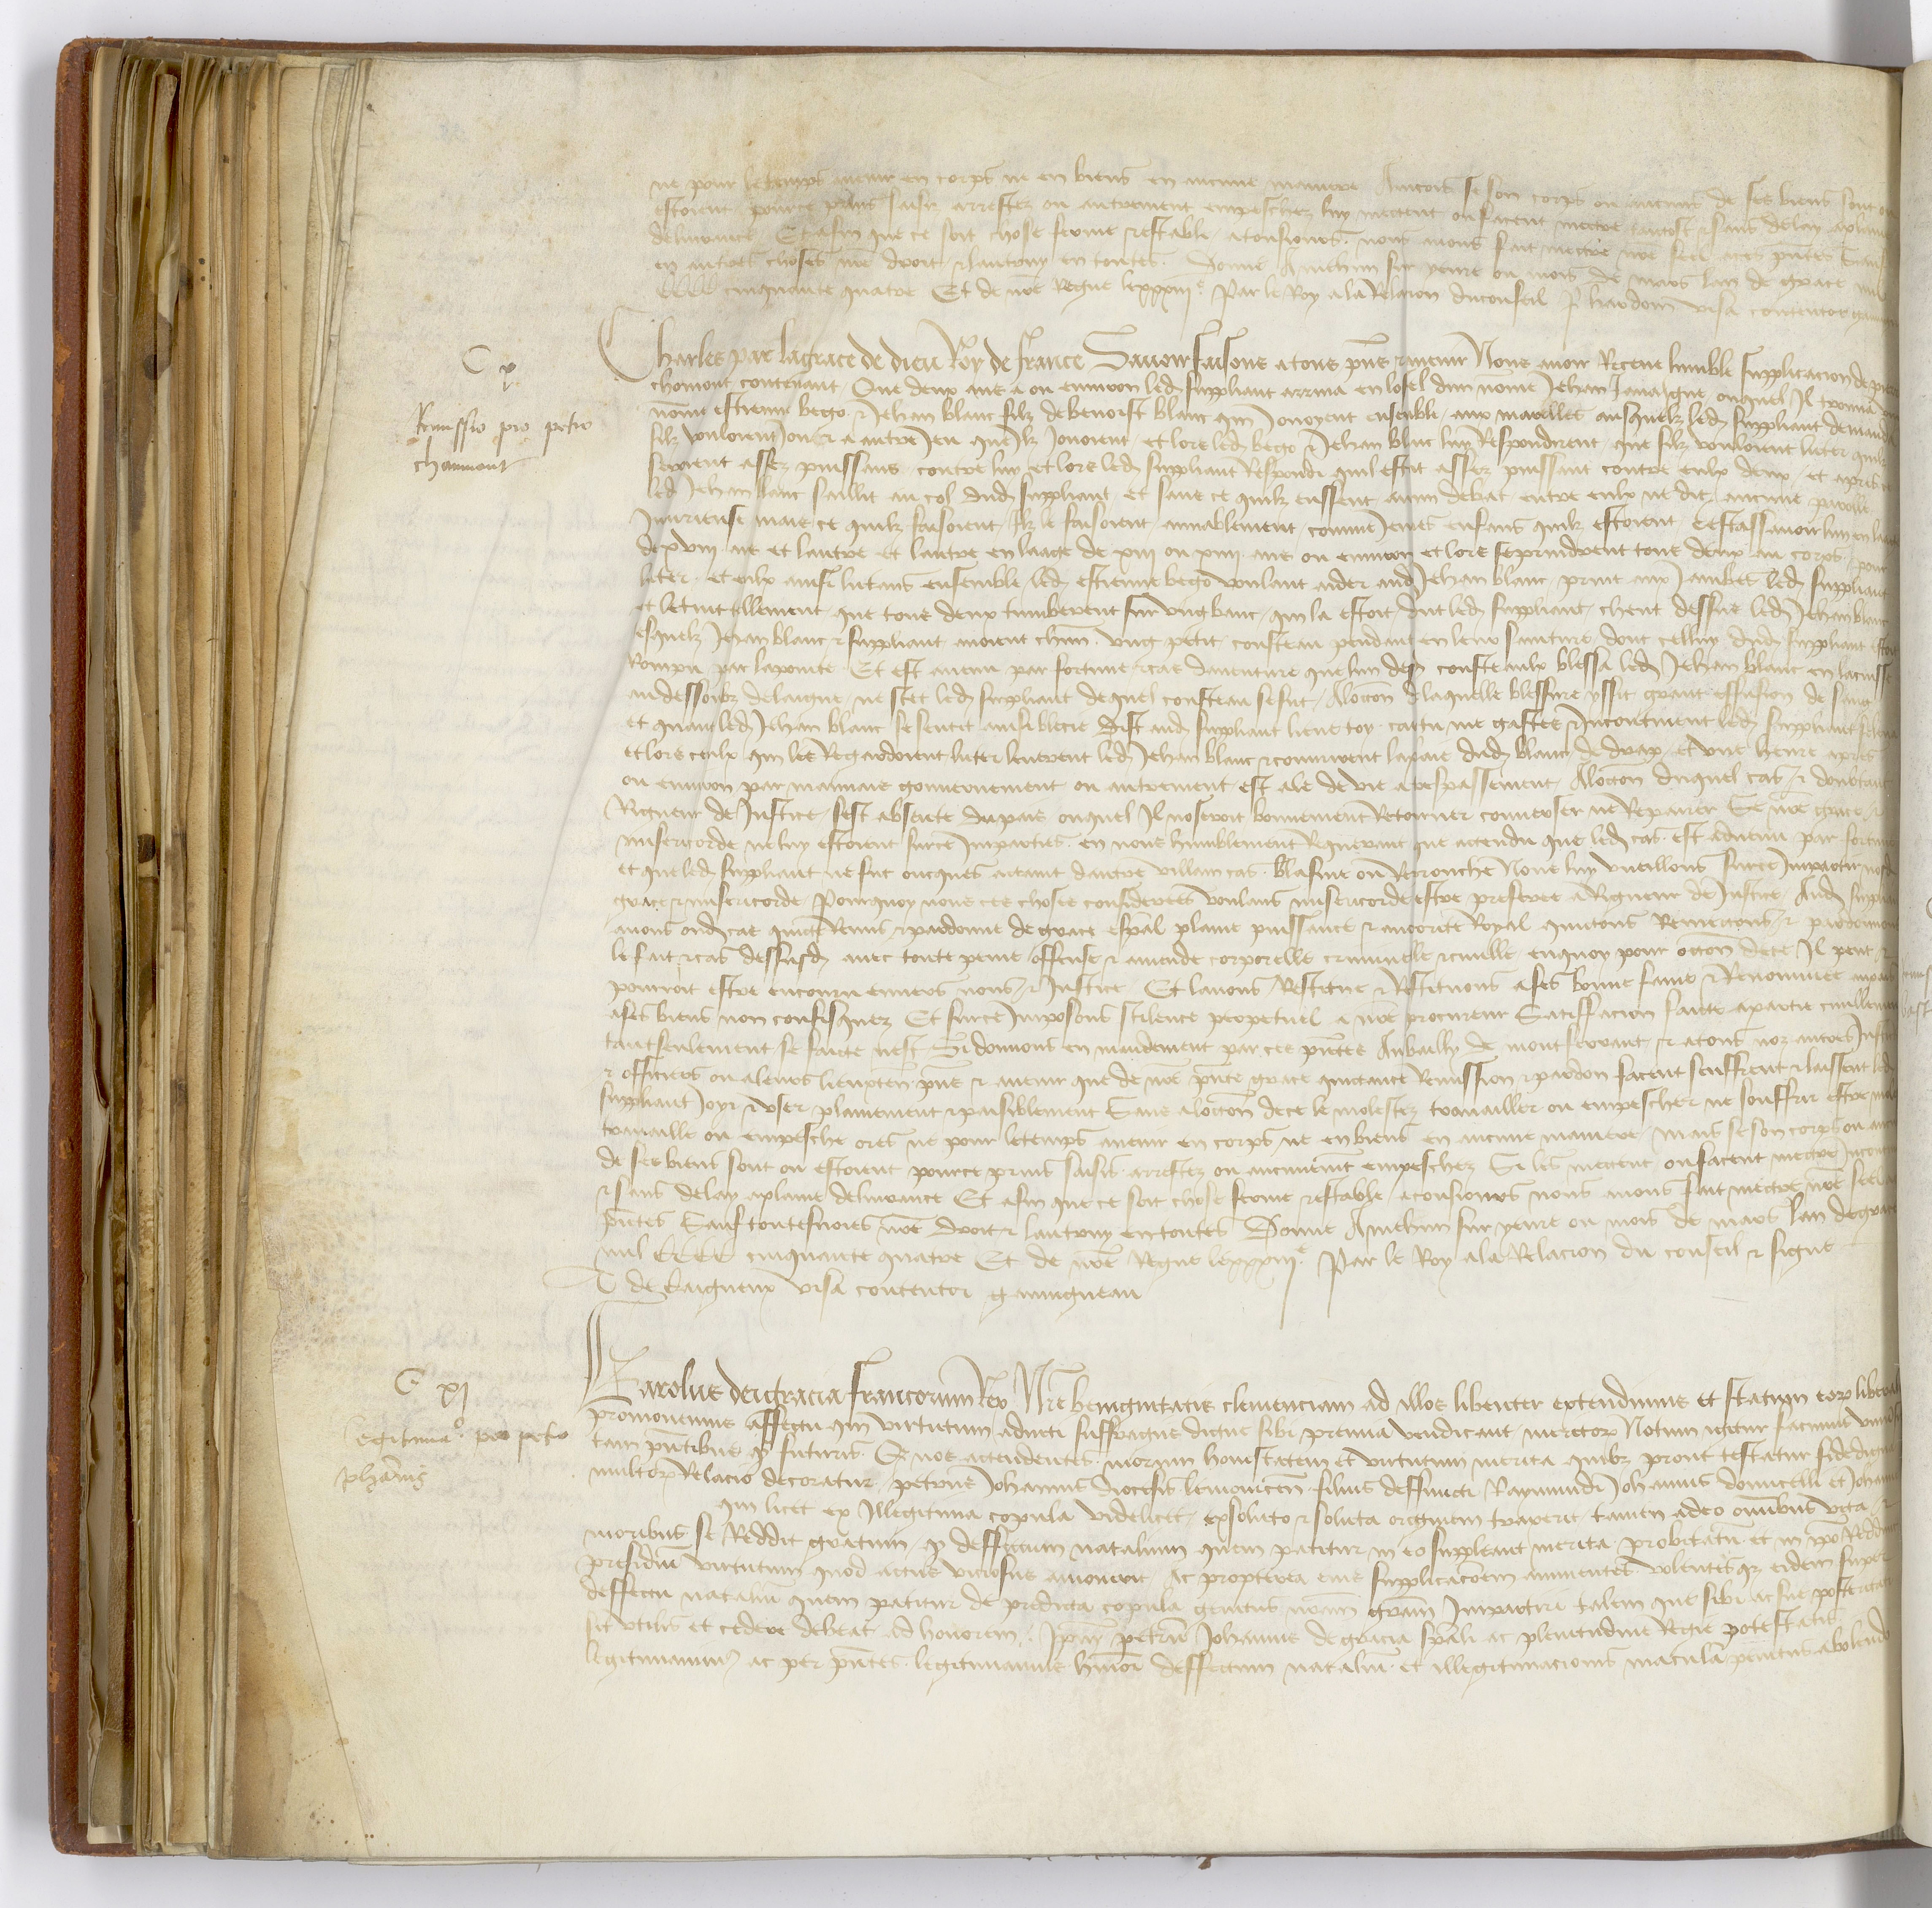 ne pour le temps avenir en corps ne en biens en aucune maniere Aincois se son corps ou aucuns de ses biens sont ou
estoient pource prins saisiz arrestez ou autrement empeschez luy mectent ou facent mectre tantost & sans delay a plaine
delivrance Et afin que ce soit chose ferme & estable atousiours nous avons fait mectre nre seel a ces pntes Sauf
en autres choses nre droit & lautruy en toutes Donne A mehun sur yevre ou mois de mars lan de grace mil
CCCC cinquante quatre Et de nre Regne le xxxiiie Par le Roy a la Relacion du conseil visa contentor
C x
Remissio pro petro
chaumont
Charles par la grace de dieu Roy de france Savoir faisons a tous pns & avenir Nous avoir Receue humble supplicacion de
chomont contenant Que deux ans a ou environ led suppliant arriva en lostel dun nome Jehan ouquel Il trouva
nomme estienne bego & Jehan blanc filz de benoist blanc qui Jouoyent ensemble aux marelles ausquelz led suppliant demanda
silz vouloient Jouer a autre Jeu quilz Jouoient et lors led bego & Jehan blanc luy Respondirent que silz vouloient luter quilz
seroient assez puissans contre luy et lors led suppliant Respondi quil estoit assez puissant contre eulx deux et apres ce
led Jehan blanc saillit au col dud suppliant et sans ce quilz eussent aucun debat entre eulx ne dit aucune parolle
Iniurieuse mais ce quilz faisoient Ilz le faisoient amiablement comme Jeunes enfans quilz estoient cestassavoir lun en laage
de xviii ans et lautre et lautre en laage de xiii ou xiiii ans ou environ et lors se prindrent tous deux au corps pour
luter et eulx ainsi lutans ensemble led estienne bego voulant aider aud Jehan blanc print aux Jambes led suppliant
et le tira tellement que tous deux tumberent sur ung banc qui la estoit dut led suppliant cheut dessus led Jehan blanc
esquelz Jehan blanc & suppliant avoient chun ung petit cousteau pendant en leur sainture dont celluy dud suppliant estoit
Rompu par la pointe Et est avenu par fortune & cas daventure que lun des cousteaulx blessa led Jehan blanc en la cuisse
au dessoubz de laigne ne scet led suppliant de quel cousteau se fut A loccon de laquelle blessure yssit grant effusion de sang
et quant led Jehan blanc se sentit ainsi blecie Dist aud suppliant lieve toy car tu me gastes & Incontinent led suppliant se leva
et lors ceulx qui les Regardoient luter leverent led Jehan blanc & couvrirent la plaie dud blanc de drap et une heure apres
ou environ par mauvais gouvernement ou autrement est ale de vie a trespassement A loccon duquel cas & doubtant
Rigueur de Justice sest absente du pais ouquel Il noseroit bonnement Retourner converser ne Repairer Se nre grace &
misericorde ne luy estoient surce Imparties en nous humblement Requerant que actendu que led cas est advenu par fortune
et que led suppliant ne fut oncques actaint dautre villain cas blasme ou Reprouche Nous luy vueillons surce Impartir nosd
grace & misericorde Pourquoy nous ces choses considerees voulans misericorde estre preferee a Rigueur de Justice Aud suppliant
avons oud cas quicte Remis & pardonne de grace espal plaine puissance & auctorite Royal quictons Remectons & pardonnons
le fait & cas dessusd avec toute peine offense & amende corporelle criminelle & civille enquoy pour occon dece Il peut &
pourroit estre encouru envers nous & Justice Et lavons Restitue & Restituons a ses bonne fame & Renommee au pais
a ses biens non confisquez Et surce Imposons silence perpetuel a nre procureur Satisfacion faicte a partie civillement
tant seulement se faicte nest Si donnons en mandement par ces pntes Au bailly de montferrant & a tous noz autres Justiciers
& officiers ou a leurs lieuxten pns & avenir que de nre pnte grace quictance Remission & pardon facent seuffrent & laissent led
suppliant Joyr & user plainement & paisiblement Sans a loccon dece le molester travailler ou empescher ne souffrir estre mole
travaille ou empesche ores ne pour le temps avenir en corps ne en biens en aucune maniere mais se son corps ou aucuns
de ses biens sont ou estoient pource prins saisis arrestez ou aucunemt empeschez Si les mectent ou facent mectre Incont
& sans delay a plaine delivrance Et afin que ce soit chose ferme & estable a tousiours nous avons fait mectre nre seel a
pntes Sauf toutesvoies nre droit & lautruy en toutes Donne A mehun sur yevre ou mois de mars lan de grace
mil CCCC cinquante quatre Et de nre Regne le xxxiiie Par le Roy a la Relacion du conseil & signe
de Caigneux visa contentor
C xj
Legitimaco pro petro
Johannis
Karolus dei gracia francorum Rex Nre benignitatis clemenciam ad illos libenter extendimus et statum eorum liberali
promovemus affectu qui virtutum adiuti suffragiis digne sibi premia vendicant meritorum Notum igitur facimus universis
tam pntibus quam futuris Quod nos actendentes morum honestatem et virtutum merita quibus prout testatur fidedigna
multorum Relacio decoratur petrus Johannis diocesis lemovicen filius deffuncti Raymundi Johannis domicelli et Johanne
qui licet ex Illegitima copula videlicet ex soluto & soluta originem traxerit tamen adeo omnibus vita &
moribus se Reddit gratum quod deffectum natalium quem patitur in eo suppleant merita probitatum et in ipso Reddunt
presidium virtutum quod actus viciosus amoverit Ac propterea eius supplicacoem annuentes volentesque eidem super
deffectu natalium quem patitur de predicta copula genitus nram gram Impartiri talem que sibi ac sue posteritati
sit utilis et cedere debeat ad honorem Ipsum petrum Johannis de gracia spali ac plenitudine Regie potestatis
legitimavimus ac per pntes legitimamus hmoi deffectum natalium et illegitimacionis maculam penitus abolendo